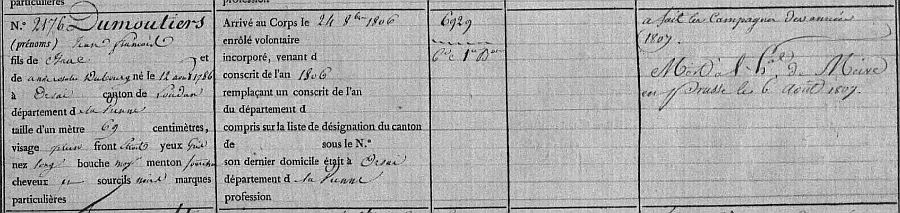 particulières
profession
N.° 2176 Dumoutiers
(prénoms) Jean françois
fils de et
de né le 12 aout 1786
à canton de Loudun
département d la Vienne
taille d'un mètre 69 centimètres,
visage plein front haut yeux gris
nez long bouche moy.e menton fourchu
cheveux et sourcils noirs marques
particulières
Arrivé au Corps le 24 8bre 1806
enrôlé volontaire
incorporé, venant d
conscrit de l'an 1806
remplaçant un conscrit de l'an
du département d
compris sur la liste de désignation du canton
de sous le N.°
son dernier domicile était à
département d la Vienne
profession
6929
a fait les Campagnes des années
1807.
Mort à l' du
en Prusse le 6 Août 1807.